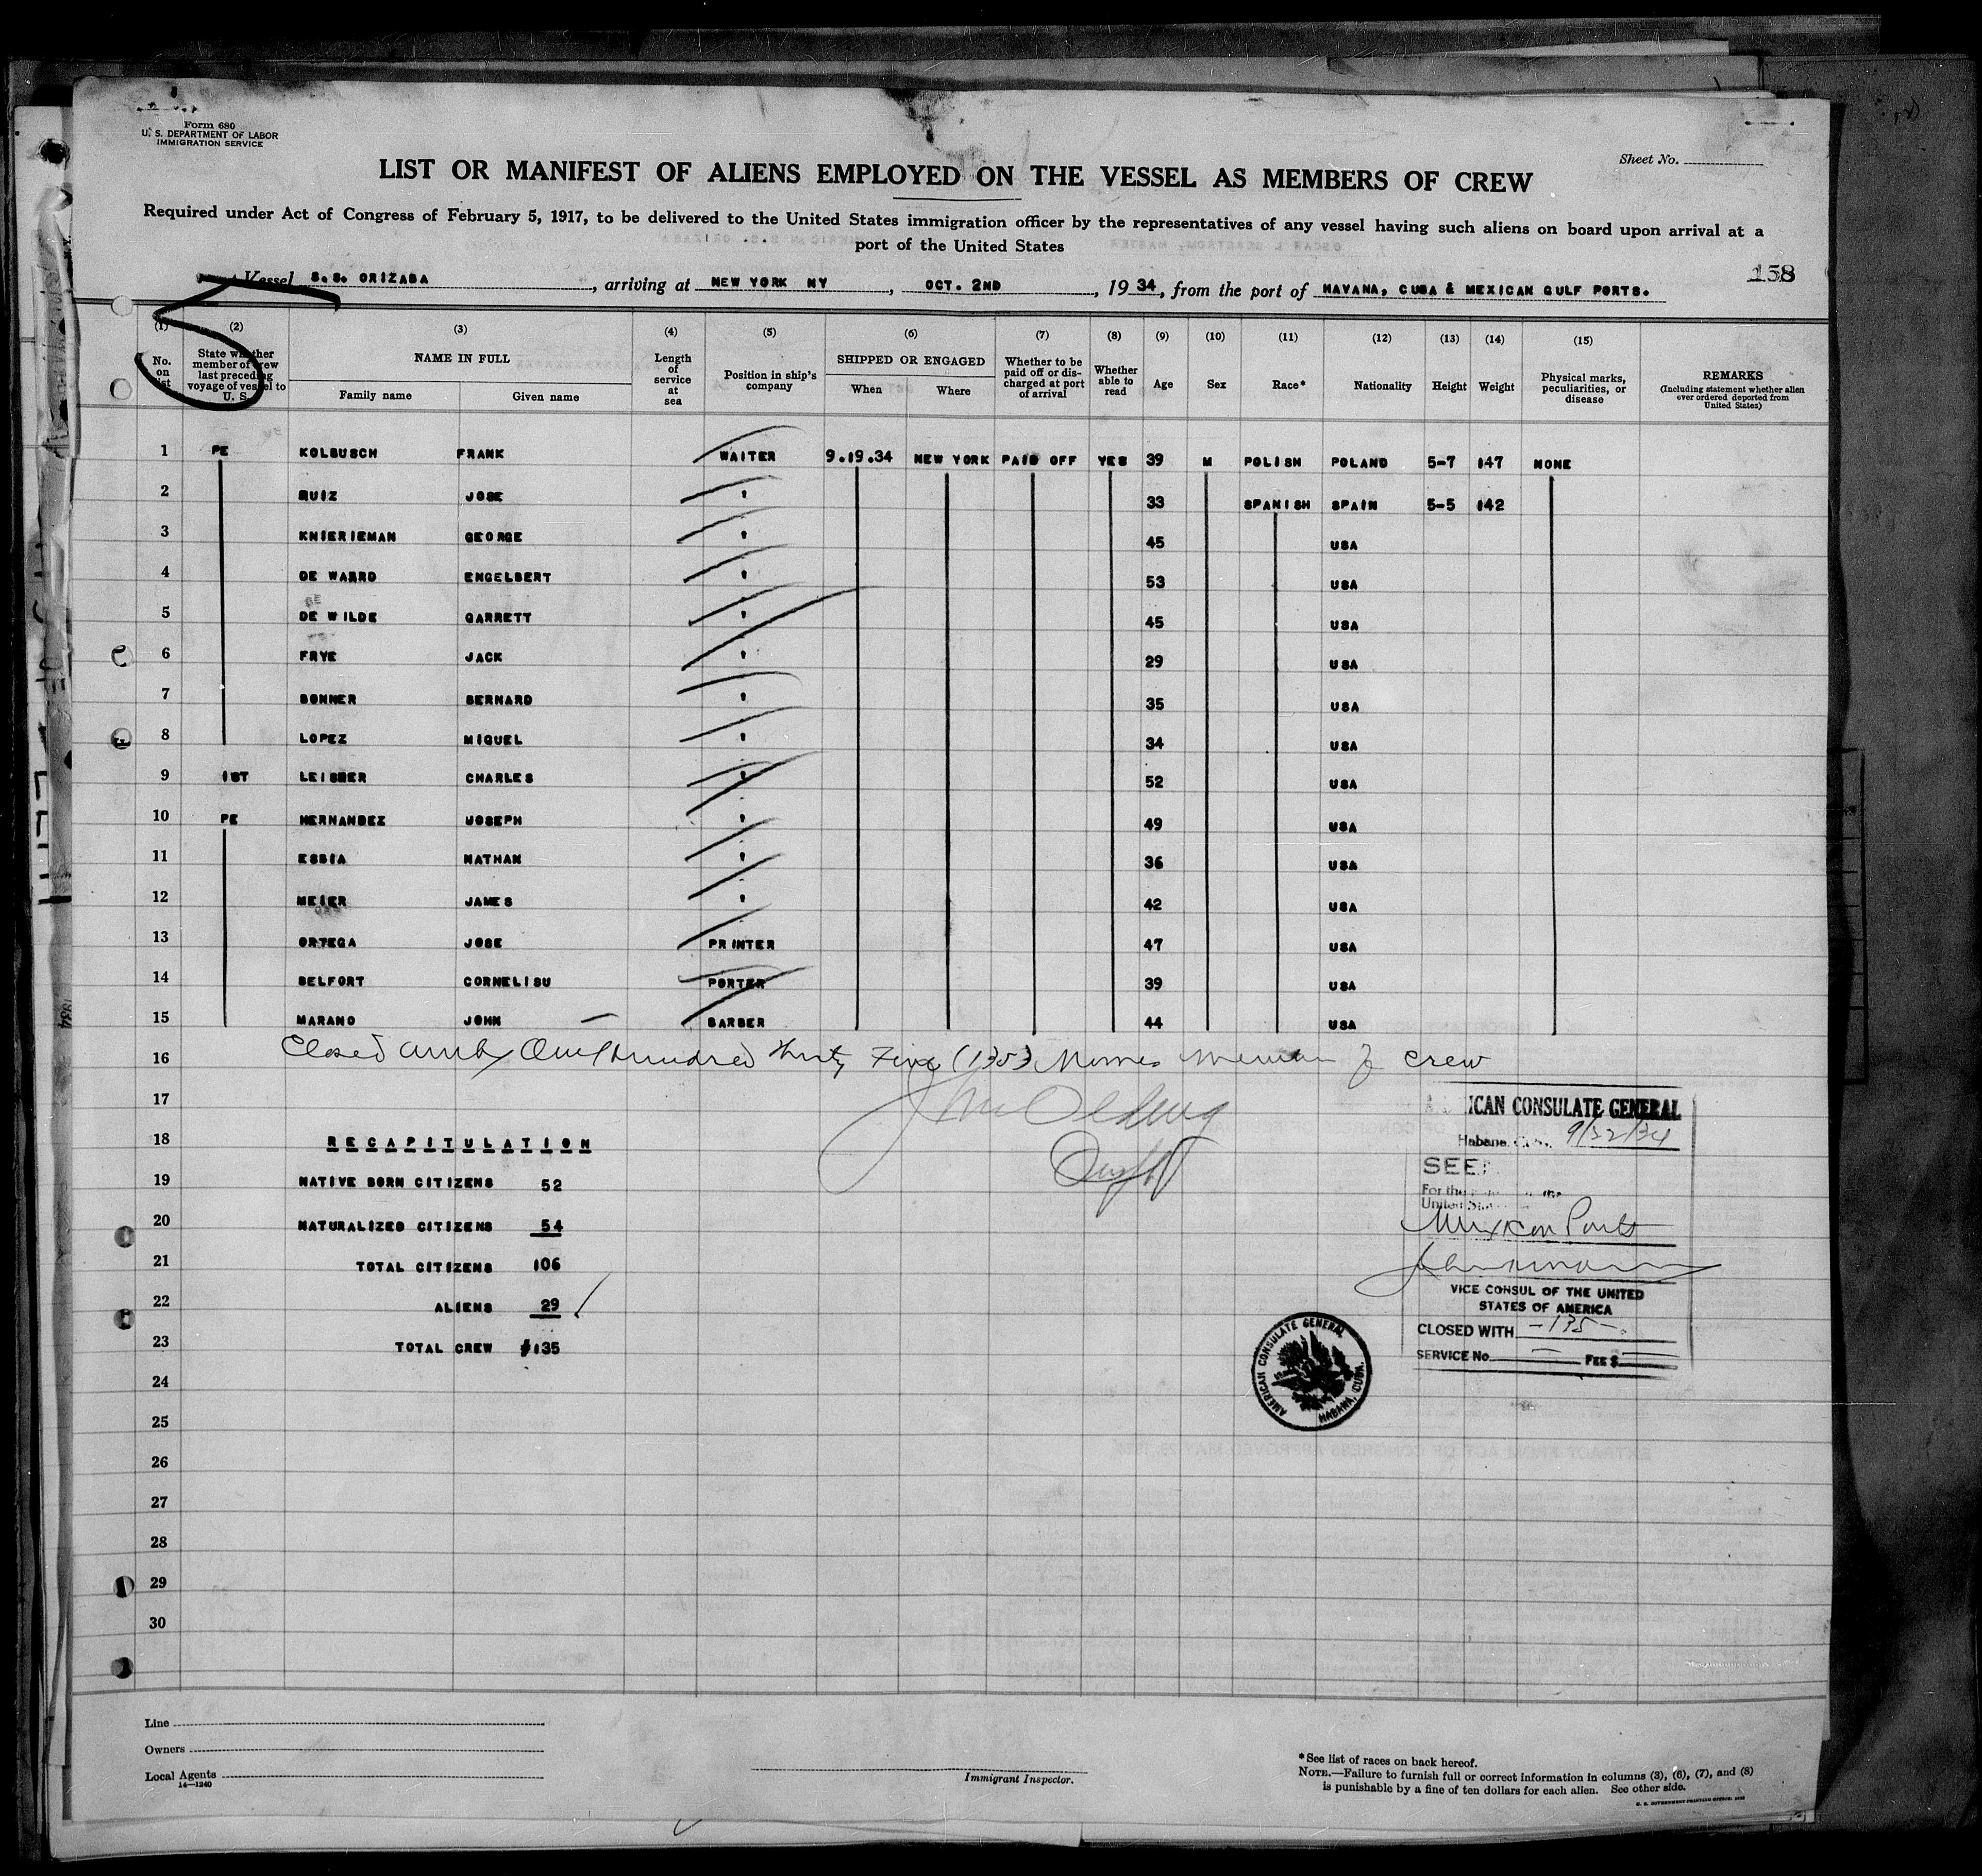 Form 680
U. S. DEPARTMENT OF LABOR
IMMIGRATION SERVICE
Sheet No.
LIST OR MANIFEST OF ALIENS EMPLOYED ON THE VESSEL AS MEMBERS OF CREW
Required under Act of Congress of February 5, 1917, to be delivered to the United States immigration officer by the representatives of any vessel having such aliens on board upon arrival at a
port of the United States
Vessel S.S. ORIZABA, arriving at NEW YORK NY, OCT. 2ND, 1934, from the port of HAVANA, CUBA & MEXICAN GULF PORTS.
158
(1) (2) (3) (4) (5) (6) (7) (8) (9) (10) (11) (12) (13) (14) (15)
No. on list
State whether member of crew last preceding voyage of vessel to U. S.
NAME IN FULL
Family name Given name
Length of service at sea
Position in ship's company
SHIPPED OR ENGAGED
When Where
Whether to be paid off or discharged at port of arrival
Whether able to read
Age
Sex
Race*
Nationality
Height
Weight
Physical marks, peculiarities, or disease
REMARKS
(Including statement whether alien ever ordered deported from United States)
1 PE KOLBUSCH FRANK WAITER 9.19.34 NEW YORK PAID OFF YES 39 M POLISH POLAND 5-7 147 NONE
2 RUIZ JOSE " 33 SPANISH SPAIN 5-5 142
3 KNIERIEMAN GEORGE " 45 USA
4 DE WARRD ENGELBERT " 53 USA
5 DE WILDE GARRETT " 45 USA
6 FRYE JACK " 29 USA
7 BONNER BERNARD " 35 USA
8 LOPEZ MIQUEL " 34 USA
9 1ST LEISNER CHARLES " 52 USA
10 PE HERNANDEZ JOSEPH " 49 USA
11 ESSIA NATHAN " 36 USA
12 MEIER JAMES " 42 USA
13 ORTEGA JOSE PRINTER 47 USA
14 BELFORT CORNELISU PORTER 39 USA
15 MARANO JOHN BARBER 44 USA
16 Closed with One hundred thirty Five (135) Names Members of crew
17
18 RECAPITULATION
19 NATIVE BORN CITIZENS 52
20 NATURALIZED CITIZENS 54
21 TOTAL CITIZENS 106
22 ALIENS 29
23 TOTAL CREW #135
24
25
26
27
28
29
30
CAN CONSULATE GENERAL
Habana
SEE
For the
United
Mexican Ports
VICE CONSUL OF THE UNITED
STATES OF AMERICA
CLOSED WITH -135-
SERVICE No. FEE $
AMERICAN CONSULATE GENERAL
HABANA, CUBA.
Line
Owners
Local Agents
14—1240
Immigrant Inspector.
*See list of races on back hereof.
NOTE.—Failure to furnish full or correct information in columns (3), (6), (7), and (8)
is punishable by a fine of ten dollars for each alien. See other side.
U. S. GOVERNMENT PRINTING OFFICE